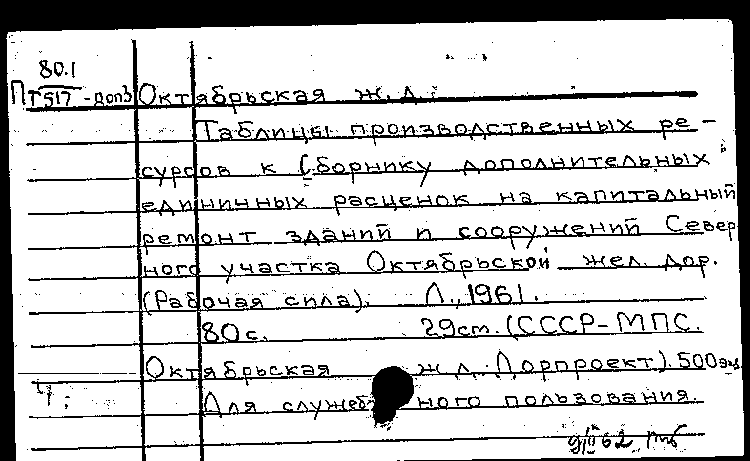 80.1
ПТ517-доп3 Октябрьская ж.д.
Таблицы производственных ре-
сурсов к Сборнику дополнительных
единичных расценок на капитальный
ремонт зданий и сооружений Север
ного участка Октябрьской жел. дор.
(Рабочая сила). Л., 1961.
80с. 29см. (СССР-МПС.
Октябрьская ж.д. Дорпроект). 500экз
Для служебного пользования.
62